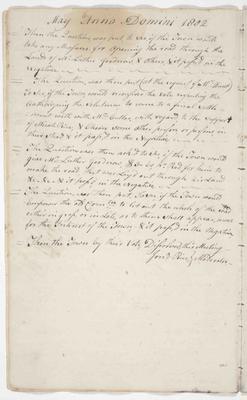 May Anno Domini 1802
Then the Question was put to see if the Town would
take any Measures for opening the road through the
Lands of Mr Luther Goodnow & others, & it pass'd in the
negative
The Question was then put at the request of
To see if the Town would reconsider the vote
the Selectmen to come to a final settle
ment with with Mr Cutler, with regard to the support
of & chuse some other person or persons in
their stead & it pass'd in the Negative
The Question was then ask'd to see if the Town would
give Mr Luther Goodnow & Co by the Rod for him to
make the road that was lay'd out through his land
&c &c & it pass'd in the negative
The Question was then put, to see if the Town would
empower the sd Comtee to let out the whole of the road
either in gross or in lots, as to them shall appear, most
for the Interest of the Town & it pass'd in the Negative
Then the Town by their Vote Dissolved this Meeting
Jona Rice, Moderator